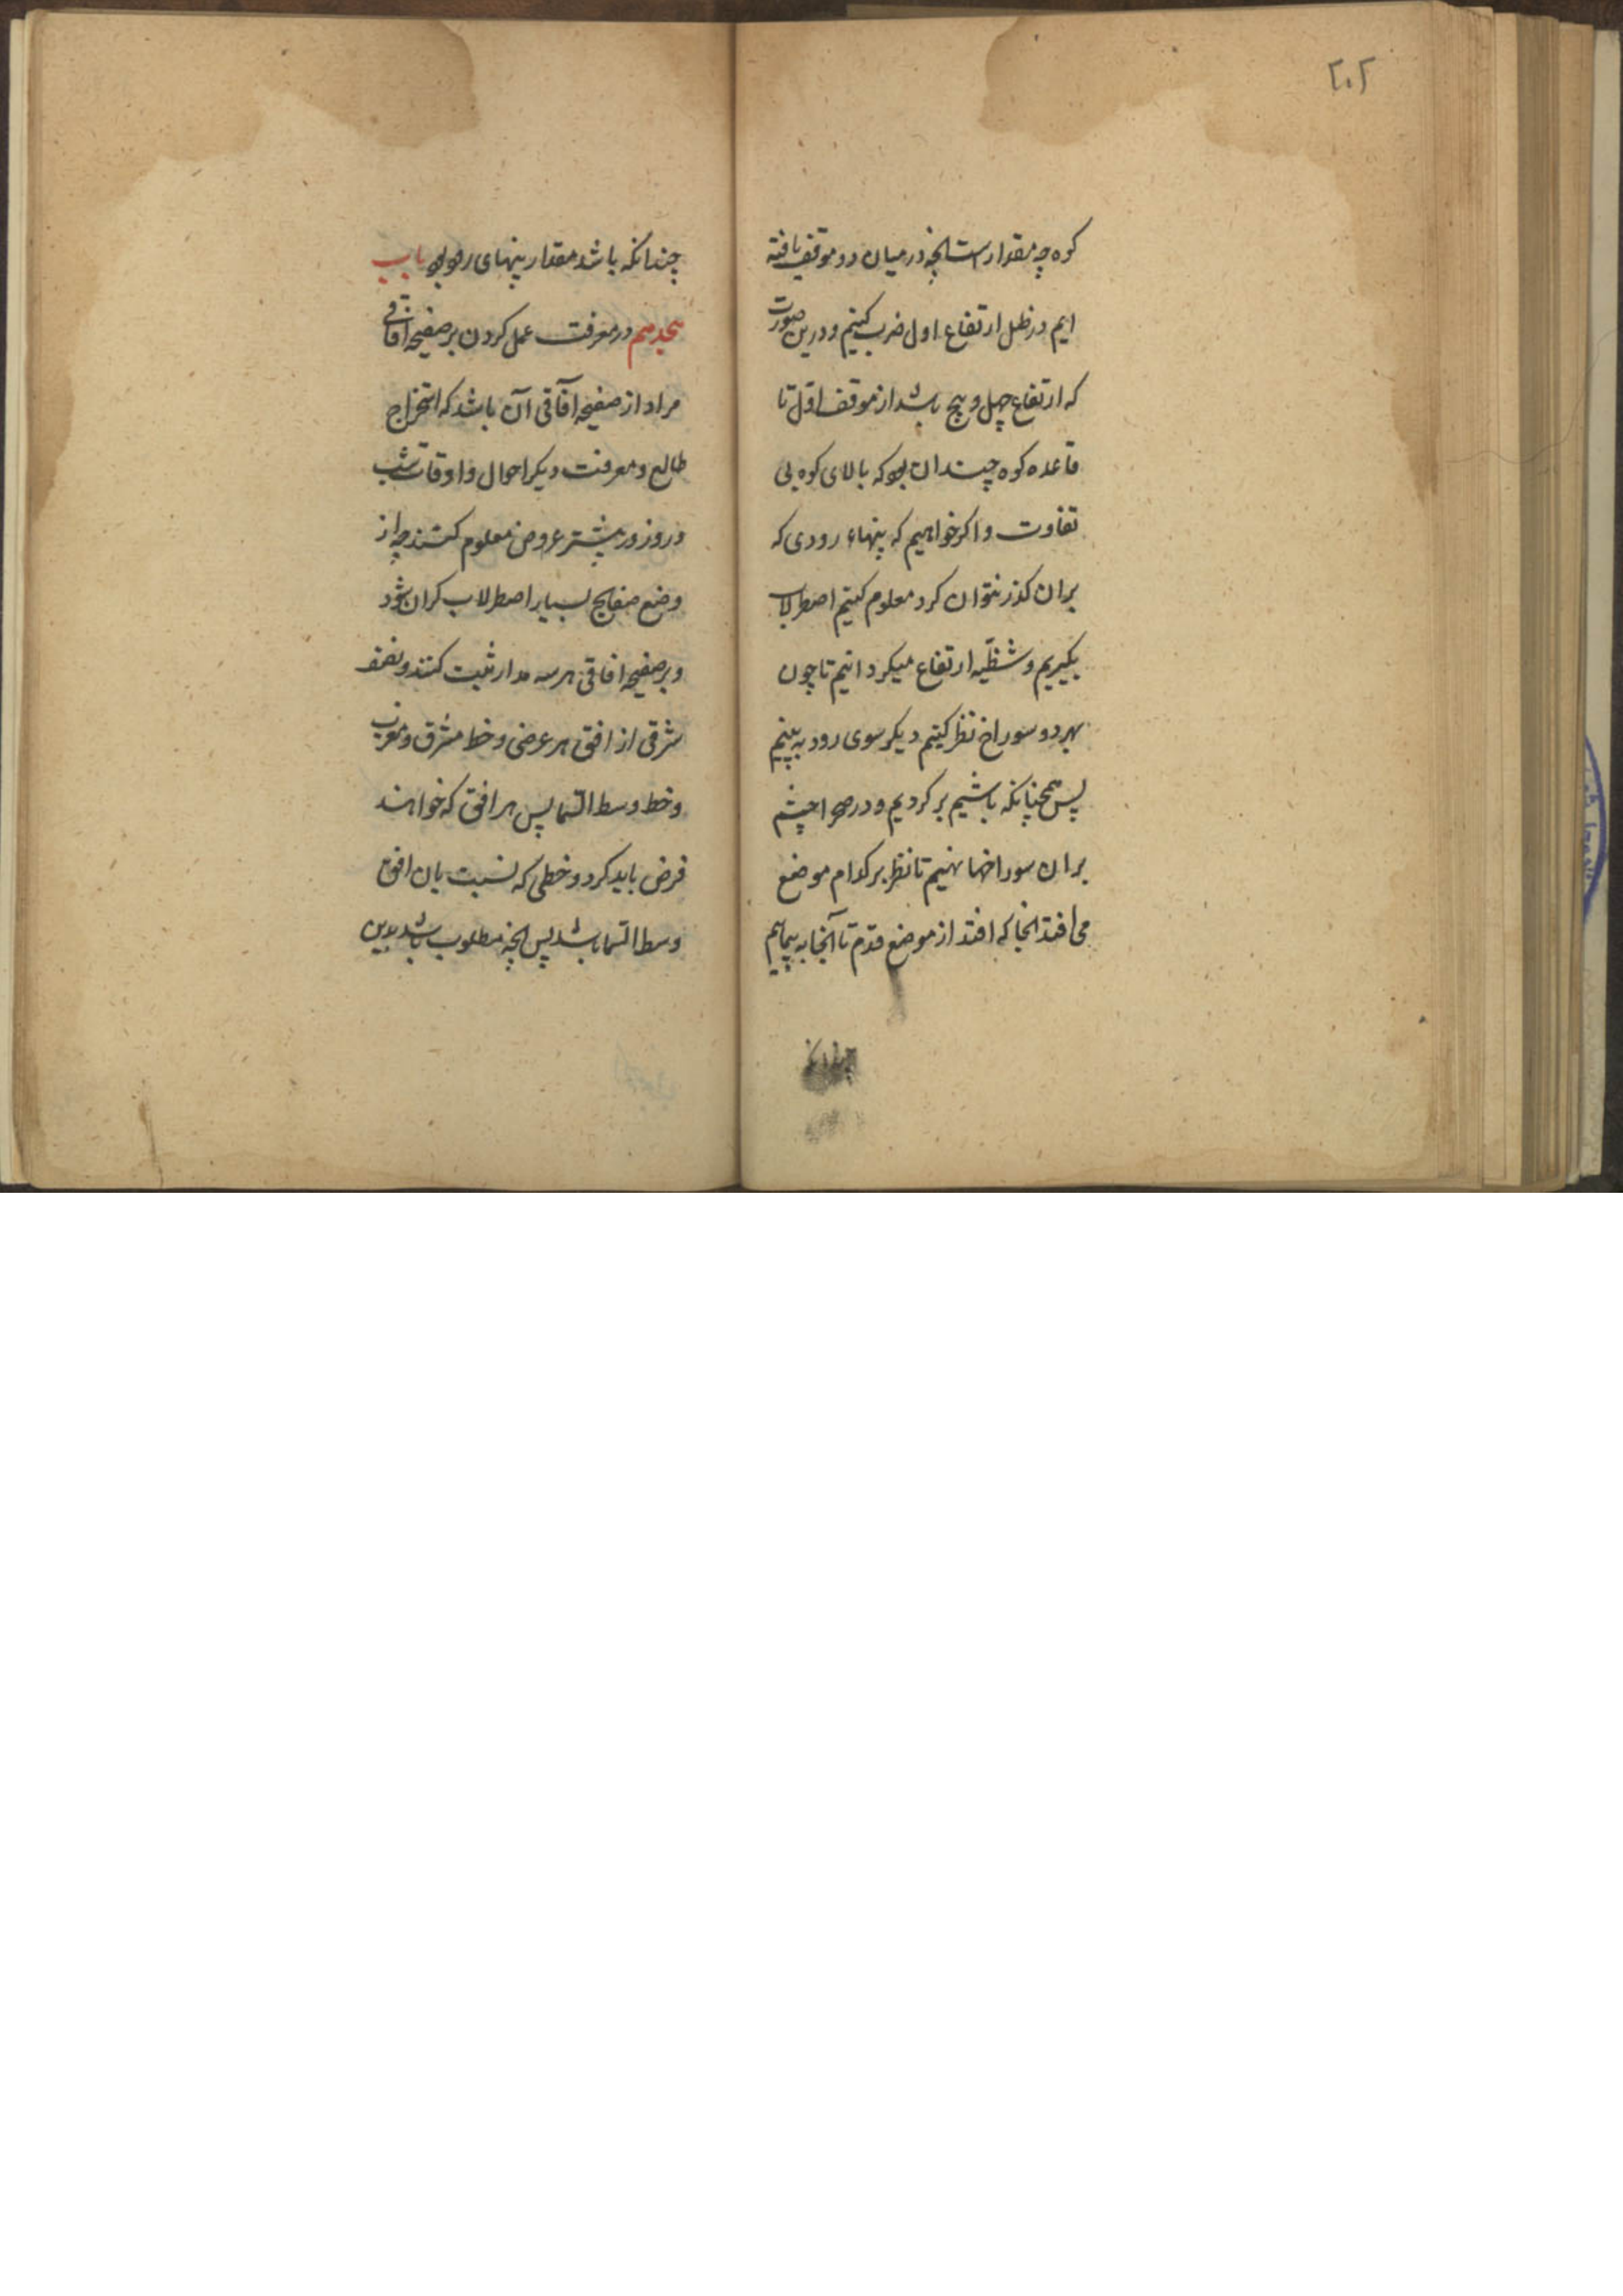 ۲۰۲
کوه چه مقدارست انچه در میان دو موقف یافته
ایم در ظل ارتفاع اول ضرب کنیم و درین صورت
که ارتفاع چهل و پنج باشد از موقف اوّل تا
قاعده کوه چندان بود که بالای کوه بی
تفاوت و اکر خواهیم که پنهاء رودی که
بران کذر نتوان کرد معلوم کنیم اصطرلاب
بکیریم و شظیّه ارتفاع میکردانیم تا چون
بهر دو سوراخ نظر کنیم دیکر سوی رود به بینیم
پس همچنانکه باشیم بر کردیم و در صحرا چشم
بران سوراخها نهیم تا نظر بر کدام موضع
می افتد انجا که افتد از موضع قدم تا آنجا به پیماییم
چندانکه
چندانکه باشد مقدار پنهای رود بود باب
هجدهم در معرفت عمل کردن بر صفیحه آفاقی
مراد از صفیحه آفاقی آن باشد که استخراج
طالع و معرفت دیکر احوال و اوقات شب
و روز در بیشتر عروض معلوم کنند چه از
وضع صفایح بسیار اصطرلاب کران شود
و بر صفیحه افاقی هر سه مدار ثبت کنند و نصف
شرقی از افق هر عرضی و خط مشرق و مغرب
و خط وسط السّما پس هر افق که خواهند
فرض باید کرد و خطی که نسبت بان افق
وسط السّما باشد پس انچه مطلوب باشد بدین